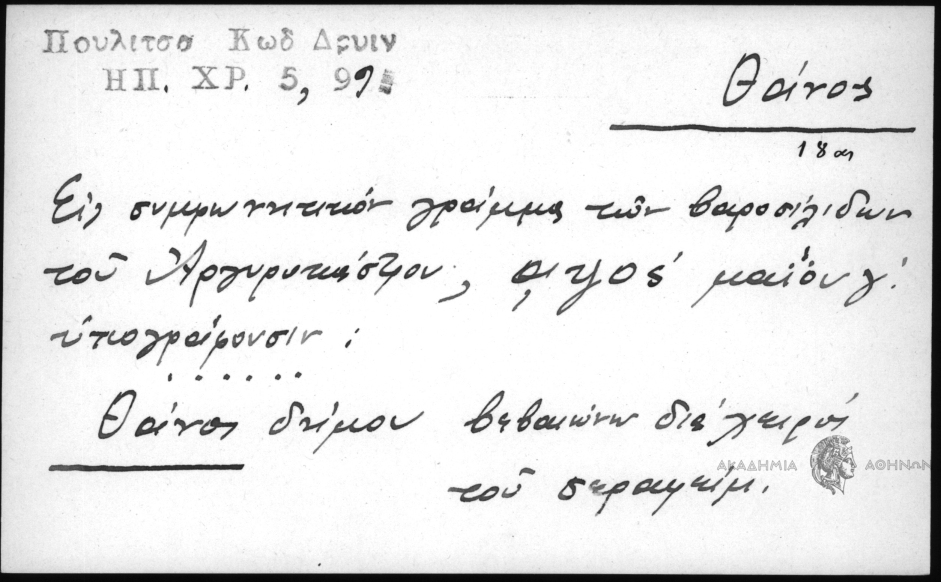 Πουλιτσα Κωδ Δρυιν
ΗΠ. ΧΡ. 5, 99
Θάνος
18 αι
Εἰς συμφωνητικόν γράμμα τῶν βαροσιλίδων
τοῦ Ἀργυροκάστρου, ͵αψος μαΐου γ΄.
ὑπογράφουσιν :
. . . . . .
Θάνος δήμου βεβαιώνω διά χειρός
τοῦ σεραφείμ.
ΑΚΑΔΗΜΙΑ ΑΘΗΝΩΝ